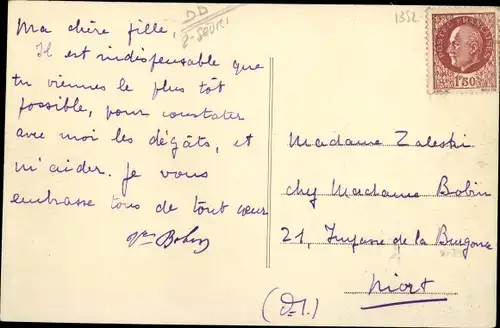 Ma chère fille,
Il est indispensable que
tu viennes le plus tôt
possible, pour constater
avec moi les dégâts, et
m'aider. Je vous
embrasse tous de tout cœur
Vve Bobin
DD
2-SEVRES
1352
1F50
Madame Zaleski
chez Madame Bobin
21, Impasse de la Burgonce
Niort
(D.S.)